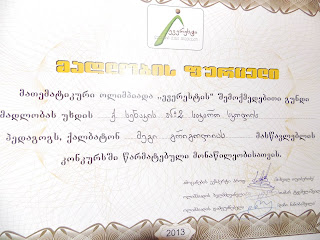 ევერესტი
მადლობის ფურცელი
მათემატიკური ოლიმპიადა „ევერესტის" შემოქმედებითი გუნდი
მადლობას უხდის ქ. სენაკის №2 საჯარო სკოლის
პედაგოგს, ქალბატონ მეგი გრიგოლიას მასწავლებლის
კონკურსში წარმატებული მონაწილეობისათვის.
2013